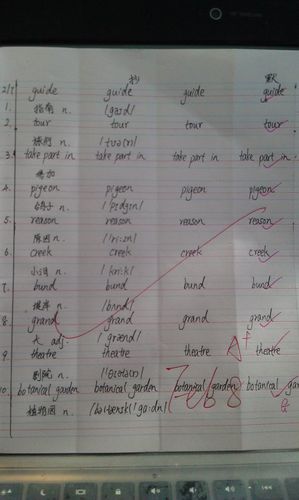 抄 默
2/7 guide guide guide guide
1. 指南 n. /gaɪd/
2. tour tour tour tour
旅行 n. /tʊə(r)/
3. take part in take part in take part in take part in
参加
4. pigeon pigeon pigeon pigeon
鸽子 n. /'pɪdʒɪn/
5. reason reason reason reason
原因 n. /'ri:zn/
6. creek creek creek creek
小河 n. /kri:k/
7. bund bund bund bund
堤岸 n. /bʌnd/
8. grand grand grand grand
大 adj. /grænd/
9. theatre theatre theatre theatre
A+
剧院 n. /'θɪətə(r)/
10. botanical garden botanical garden botanical garden botanical gar
Feb 8
植物园 n. /bə'tænɪkl 'gɑ:dn/